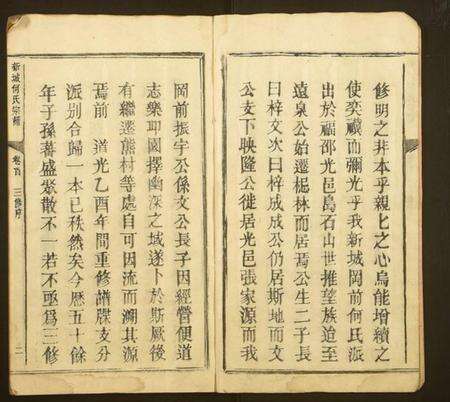 修明之非本乎親匕之心烏能增續之
使奕禩而彌光乎我新城岡前何氏派
出於福邵光邑島石山世推望族迨至
遠泉公始遷椐林而居焉公生二子長
曰梓文次曰梓成成公仍居斯地而文
公支下映隆公徙居光邑張家源而我
岡前振宇公係文公長子因經營便道
志樂耶國擇幽深之域遂卜於斯厥後
有繼遷熊村等處自可因流而溯其源
焉前 道光乙酉年間重修譜牒支分
派别合歸一本已秩然矣今歷五十餘
年子孫蕃盛繁散不一若不亟爲三修
新城何氏宗譜
卷首
三修序
二